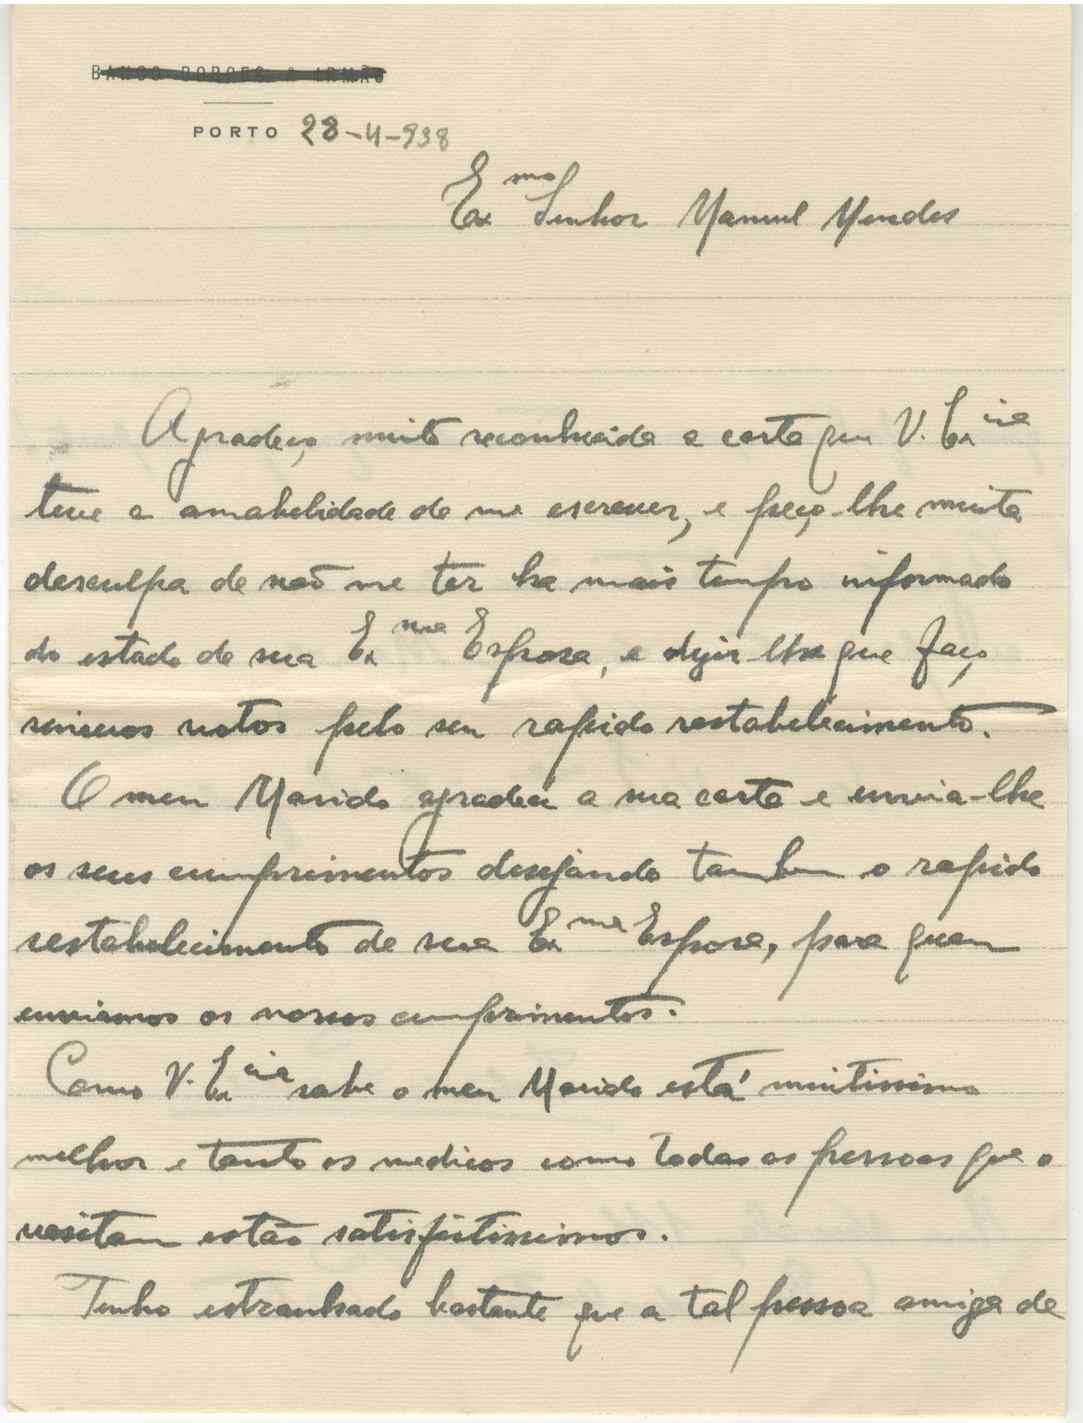 BANCO BORGES & IRMÃO
PORTO 28-4-938
Exmo Senhor Manuel Mendes
Agradeço muito reconhecida a carta que V. Excia
teve a amabelidade de me escrever, e peço-lhe muita
desculpa de não me ter ha mais tempo informado
do estado de sua Exma Esposa, e dizer-lhe que faço
sinceros votos pelo seu rapido restabelecimento.
O meu Marido agradece a sua carta e envia-lhe
os seus cumprimentos desejando tambem o rapido
restabelecimento de sua Exma Esposa, para quem
enviamos os nossos cumprimentos.
Como V. Excia sabe o meu Marido está muitissimo
melhor e tanto os medicos como todas as pessoas que o
visitam estão satisfeitissimos.
Tenho estranhado bastante que a tal pessoa amiga de